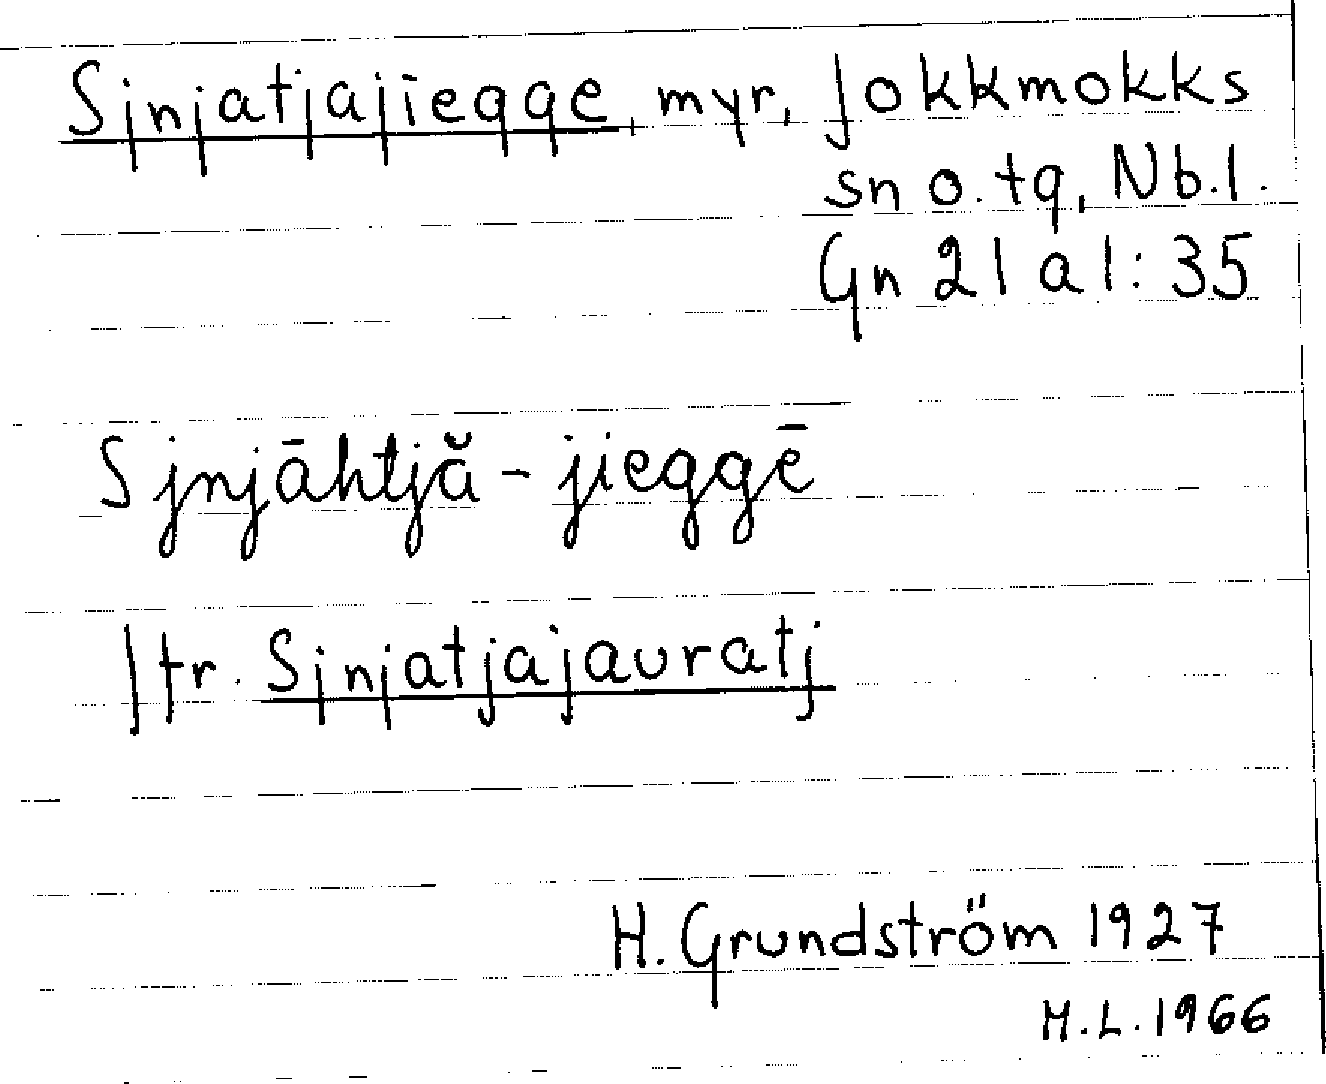 Sjnjatjajiegge, myr, Jokkmokks
sn o. tg, Nb.l.
Gn 21 a 1:35
Sjnjāhtjă-jieggē
Jfr. Sjnjatjajauratj
H. Grundström 1927
H.L. 1966